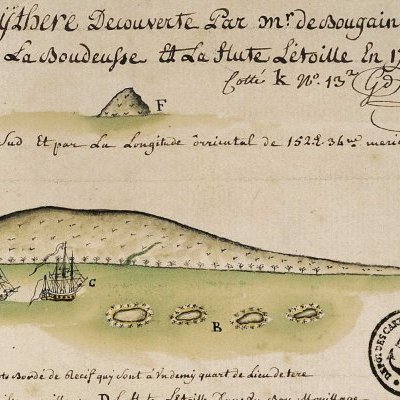 ÿthere Decouverte Par mr. de Bougain
La Boudeusse Et La flute L'étoille En 17
Cotté k No. 13
F
Sud Et par La Longitude ôrriental de 152
C
B
ots Bordé de Recif qui sont à Un demÿ quart de Lieu de tere
D La flute L'étoille Dans du Bon Mouillage
DEPOT DES CAR